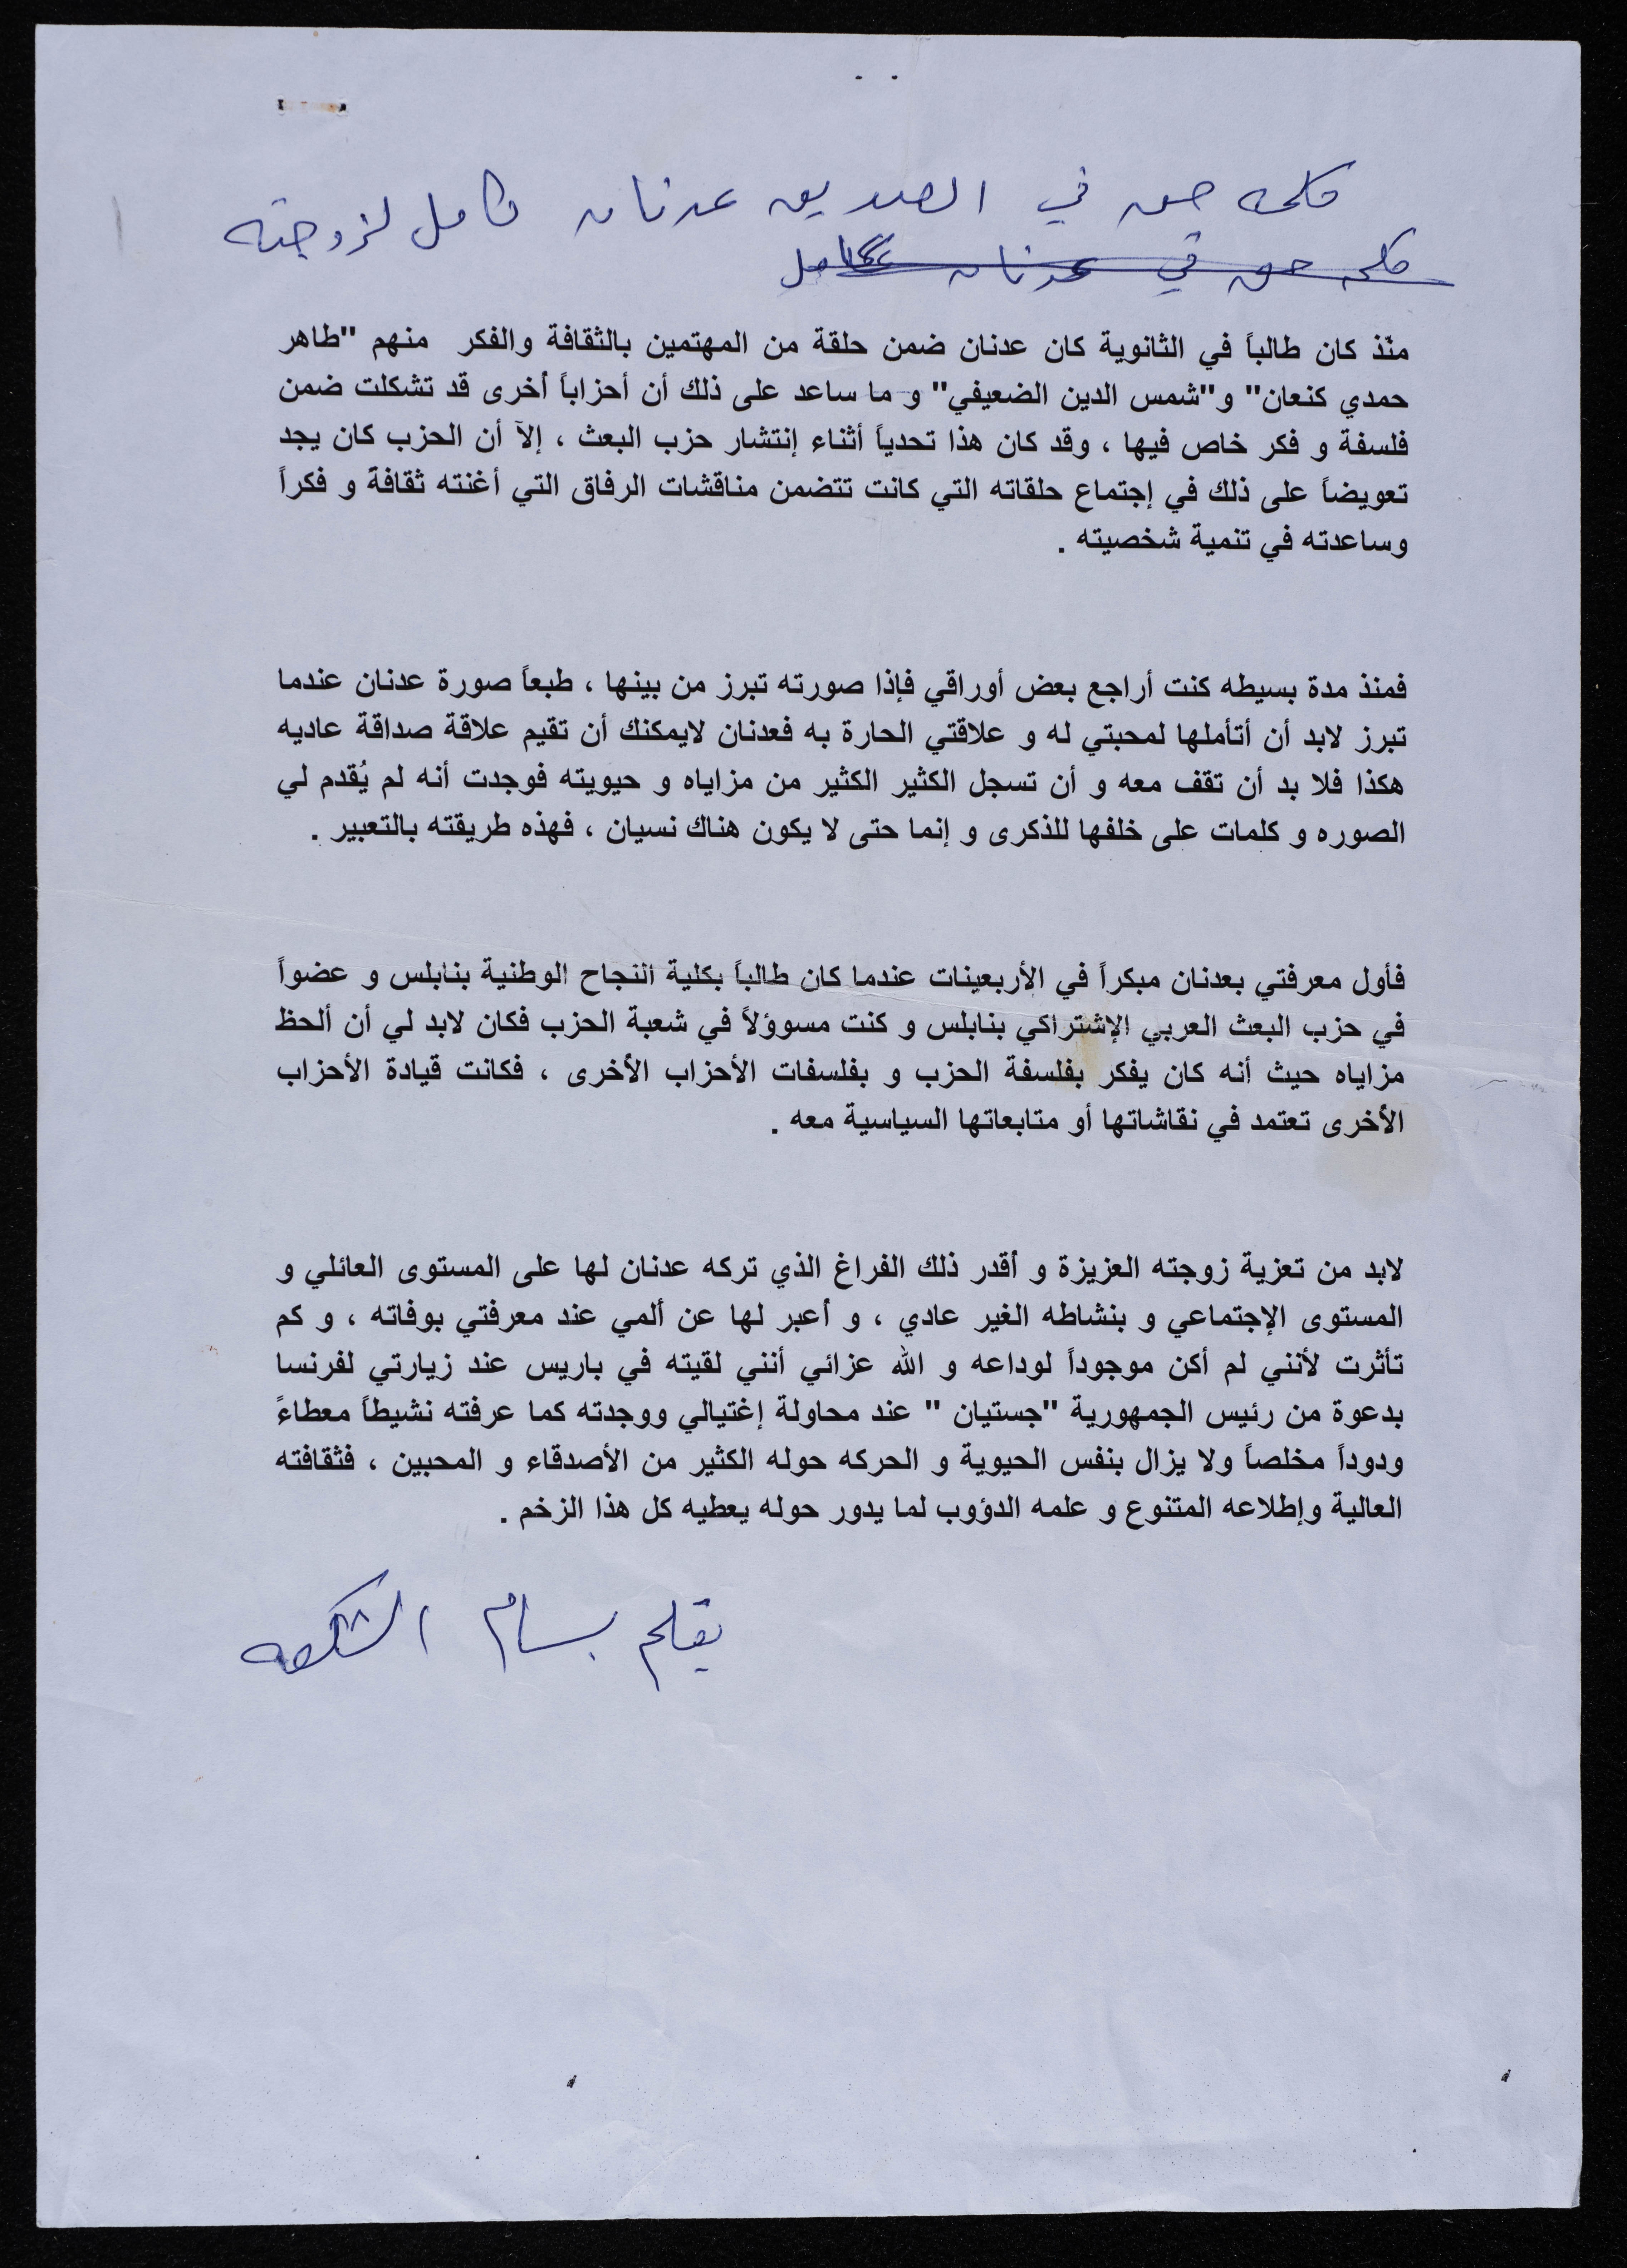 كلمه حق في الصديق عدنان كامل لزوجته
كلمه حق في عدنان كامل
منّذ كان طالباً في الثانوية كان عدنان ضمن حلقة من المهتمين بالثقافة والفكر منهم "طاهر
حمدي كنعان" و"شمس الدين الضعيفي" و ما ساعد على ذلك أن أحزاباً أخرى قد تشكلت ضمن
فلسفة و فكر خاص فيها ، وقد كان هذا تحدياً أثناء إنتشار حزب البعث ، إلآ أن الحزب كان يجد
تعويضاً على ذلك في إجتماع حلقاته التي كانت تتضمن مناقشات الرفاق التي أغنته ثقافةً و فكراً
وساعدته في تنمية شخصيته .
فمنذ مدة بسيطه كنت أراجع بعض أوراقي فإذا صورته تبرز من بينها ، طبعاً صورة عدنان عندما
تبرز لابد أن أتأملها لمحبتي له و علاقتي الحارة به فعدنان لايمكنك أن تقيم علاقة صداقة عاديه
هكذا فلا بد أن تقف معه و أن تسجل الكثير الكثير من مزاياه و حيويته فوجدت أنه لم يُقدم لي
الصوره و كلمات على خلفها للذكرى و إنما حتى لا يكون هناك نسيان ، فهذه طريقته بالتعبير .
فأول معرفتي بعدنان مبكراً في الأربعينات عندما كان طالباً بكلية النجاح الوطنية بنابلس و عضواً
في حزب البعث العربي الإشتراكي بنابلس و كنت مسوؤلاً في شعبة الحزب فكان لابد لي أن ألحظ
مزاياه حيث أنه كان يفكر بفلسفة الحزب و بفلسفات الأحزاب الأخرى ، فكانت قيادة الأحزاب
الأخرى تعتمد في نقاشاتها أو متابعاتها السياسية معه .
لابد من تعزية زوجته العزيزة و أقدر ذلك الفراغ الذي تركه عدنان لها على المستوى العائلي و
المستوى الإجتماعي و بنشاطه الغير عادي ، و أعبر لها عن ألمي عند معرفتي بوفاته ، و كم
تأثرت لأنني لم أكن موجوداً لوداعه و الله عزائي أنني لقيته في باريس عند زيارتي لفرنسا
بدعوة من رئيس الجمهورية "جستيان " عند محاولة إغتيالي ووجدته كما عرفته نشيطاً معطاءً
ودوداً مخلصاً ولا يزال بنفس الحيوية و الحركه حوله الكثير من الأصدقاء و المحبين ، فثقافته
العالية وإطلاعه المتنوع و علمه الدؤوب لما يدور حوله يعطيه كل هذا الزخم .
بقلم بسام الشكعه